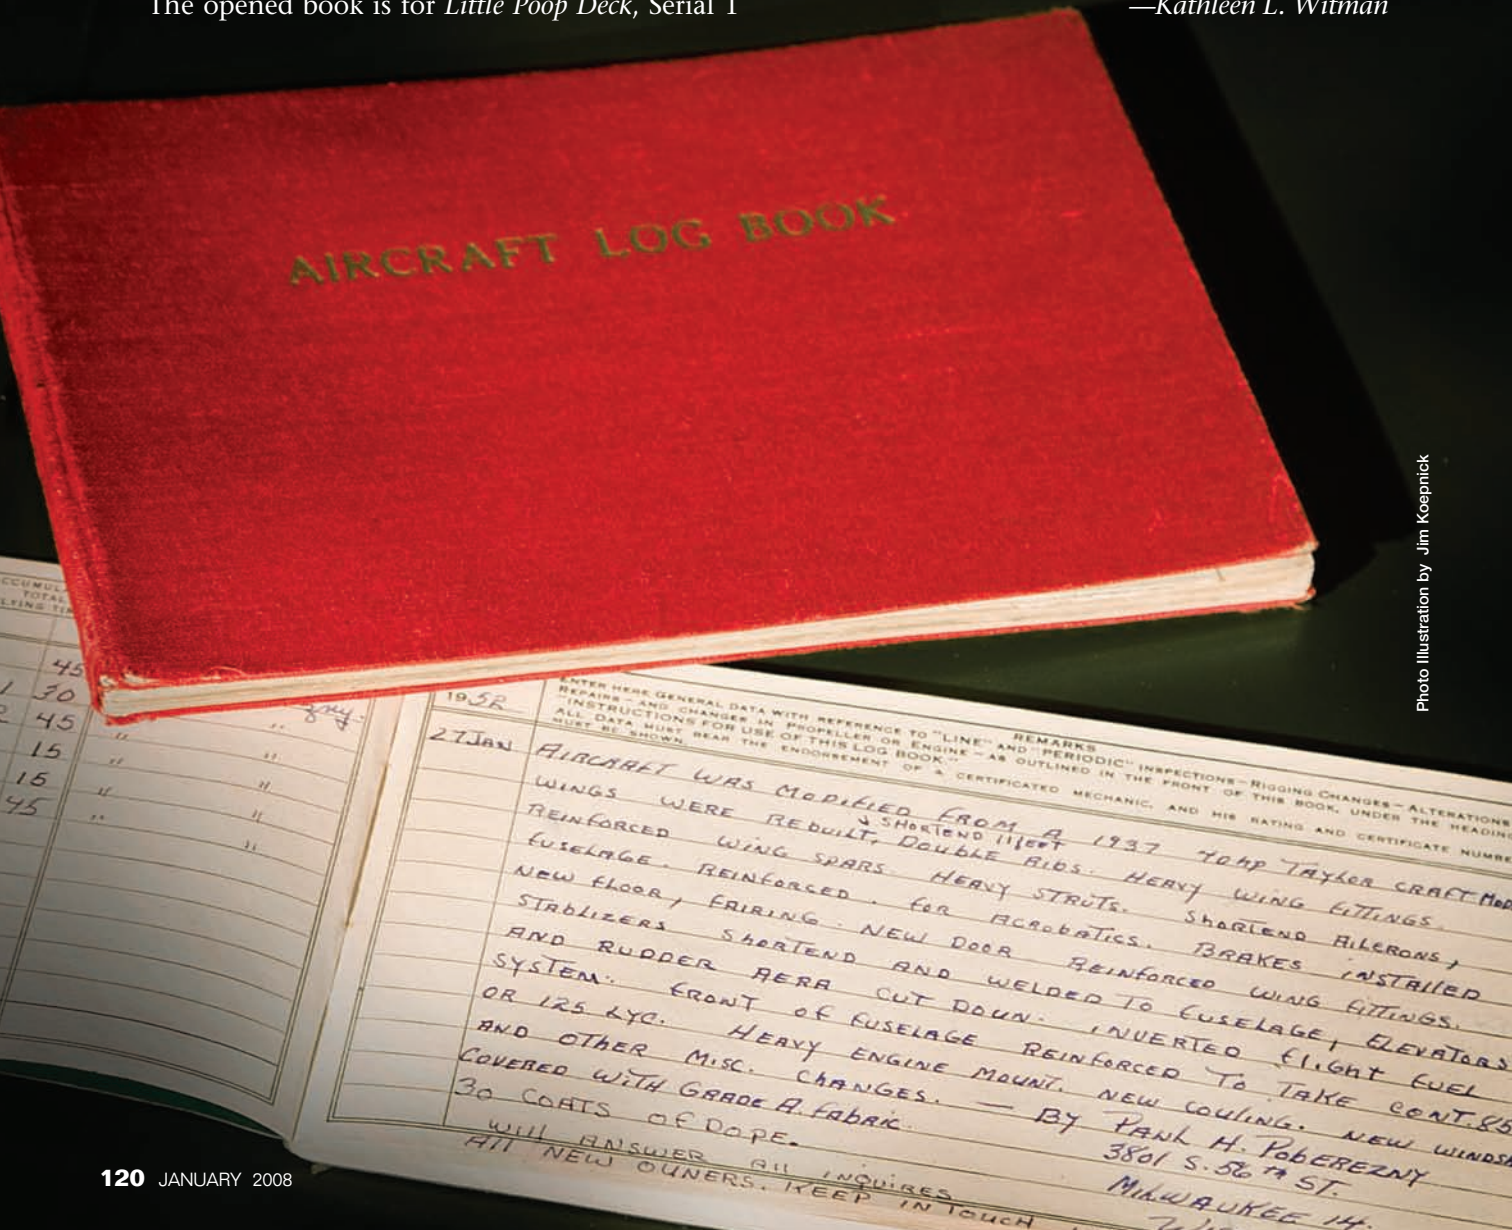 The opened book is for Little Poop Deck, Serial 1
—Kathleen L. Witman
AIRCRAFT LOG BOOK
Photo Illustration by Jim Koepnick
TOTAL
45
30
45
15
15
45
1952
REMARKS
ENTER HERE GENERAL DATA WITH REFERENCE TO "LINE" AND "PERIODIC" INSPECTIONS—RIGGING CHANGES—ALTERATIONS
REPAIRS—AND CHANGES IN PROPELLER OR ENGINE—AS OUTLINED IN THE FRONT OF THIS BOOK, UNDER THE HEADING
"INSTRUCTIONS FOR USE OF THIS LOG BOOK."
ALL DATA MUST BEAR THE ENDORSEMENT OF A CERTIFICATED MECHANIC, AND HIS RATING AND CERTIFICATE NUMBE
MUST BE SHOWN.
27 JAN
AIRCRAFT WAS MODIFIED FROM A 1937 40HP TAYLOR CRAFT MOD
& SHORTEND 11 FEET
WINGS WERE REBUILT, DOUBLE RIBS. HEAVY WING FITTINGS.
REINFORCED WING SPARS. HEAVY STRUTS. SHORTEND AILERONS,
FUSELAGE. REINFORCED. FOR ACROBATICS. BRAKES INSTALLED
NEW FLOOR, FAIRING. NEW DOOR REINFORCED WING FITTINGS.
STABLIZERS SHORTEND AND WELDED TO FUSELAGE, ELEVATORS
AND RUDDER AERA CUT DOUN. INVERTED FLIGHT FUEL
SYSTEM. FRONT OF FUSELAGE REINFORCED TO TAKE CONT. 85
OR 125 LYC. HEAVY ENGINE MOUNT. NEW COULING. NEW WINDSH
AND OTHER MISC. CHANGES. — BY PAUL H. POBEREZNY
COVERED WITH GRADE A. FABRIC. 3801 S. 56 TH ST.
30 COATS OF DOPE. MILWAUKEE 14.
WILL ANSWER ALL INQUIRES
ALL NEW OUNERS. KEEP IN TOUCH
120 JANUARY 2008